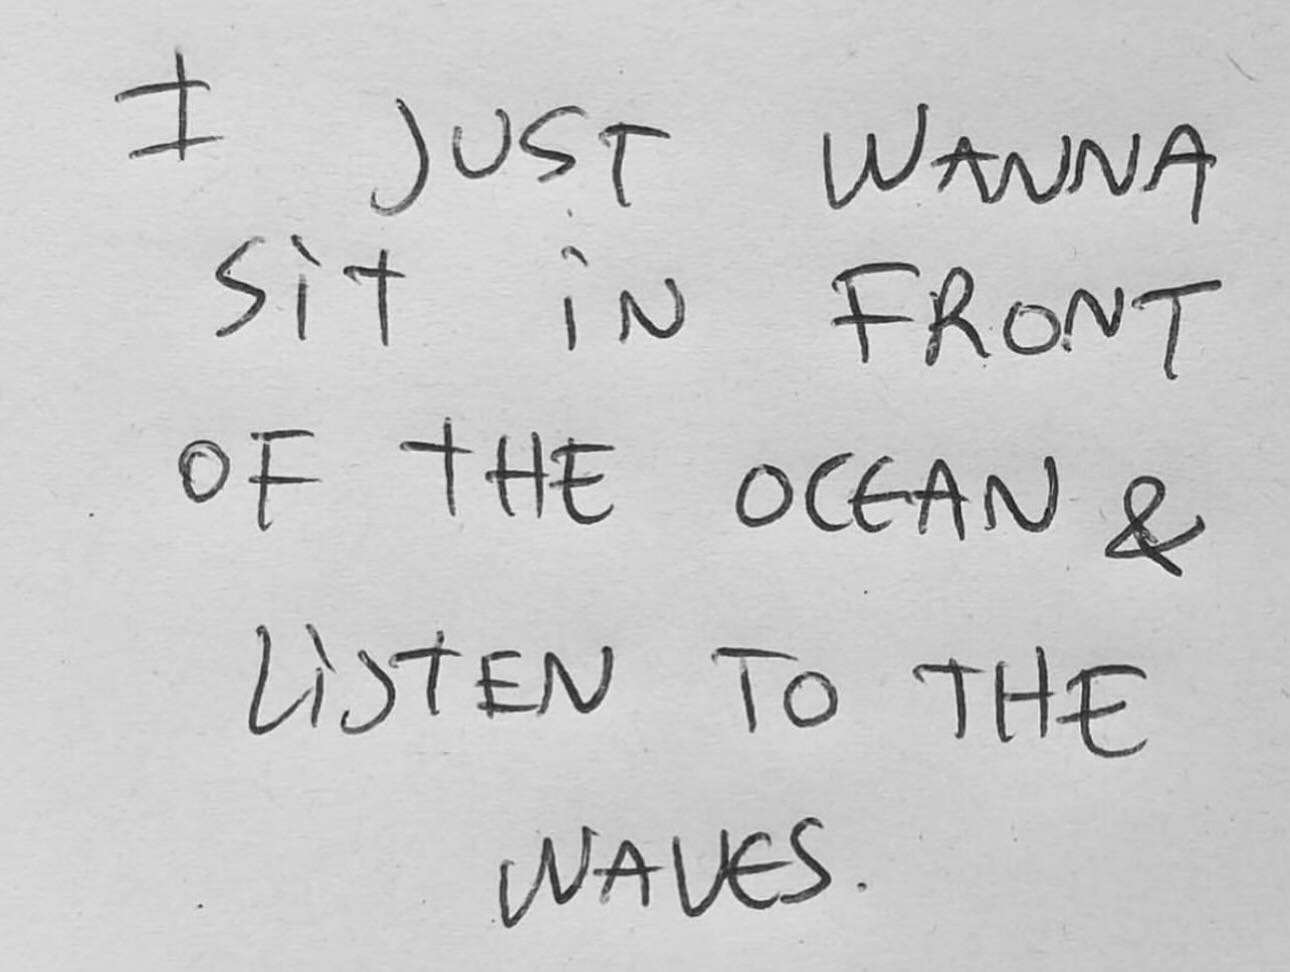 I JUST WANNA
SiT iN FRONT
OF THE OCEAN &
LiSTEN TO THE
WAVES.